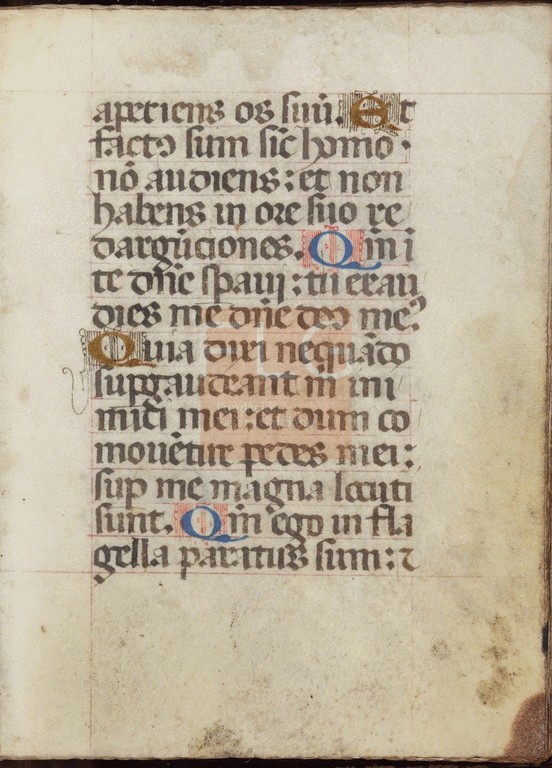 aperiens os suū. Et
factꝰ sum sic̄ homo
nō audiens: et non
habens in ore suo re
dargūciones. Qm̄ ī
te dn̄e speaui: tu exau
dies me dn̄e deꝰ meꝰ
Quia dixi neqn̄do
suꝑgaudeant m̄ ini
mici mei: et dum co
mouēt̄ur pedes mei:
suꝑ me magna locuti
sunt. Qm̄ ego in fla
gella paratus sum: ⁊